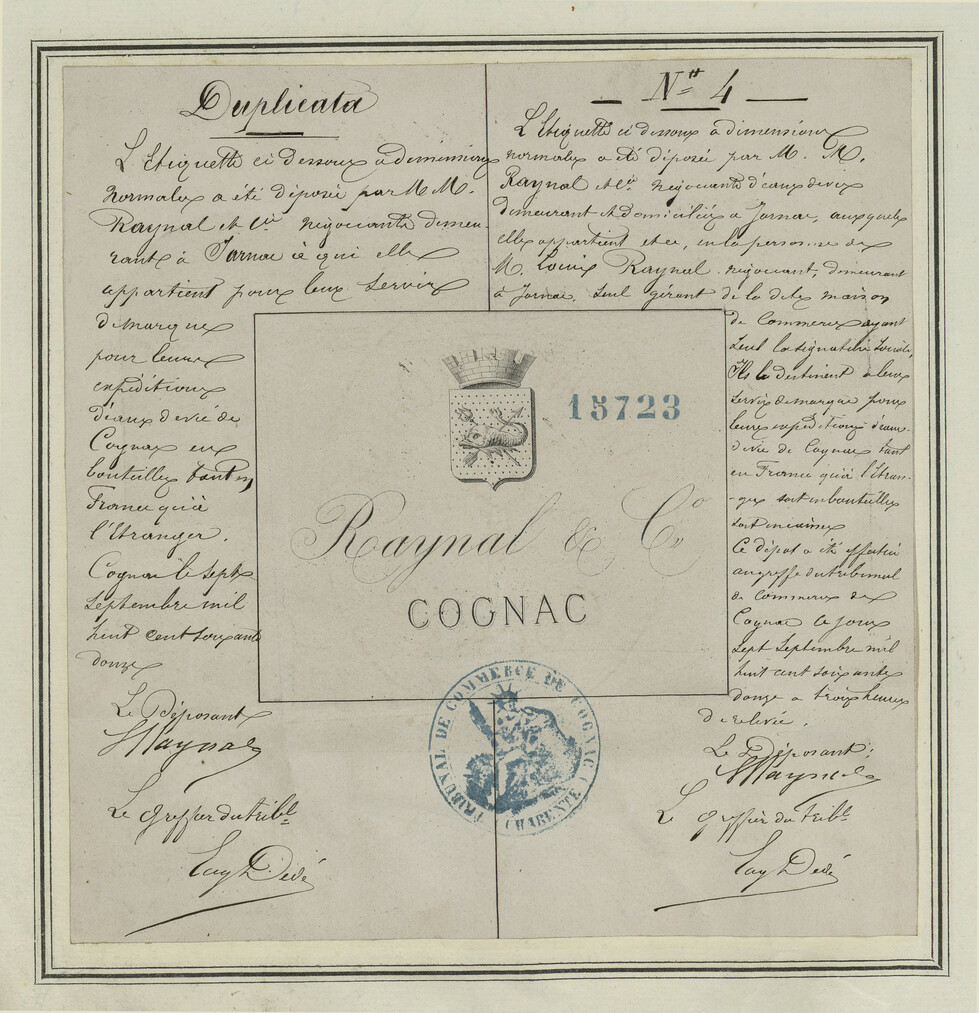 Duplicata
L'Etiquette ci dessous à dimensions
normales a été déposée par M. M.
Raynal et Cie négociants demeu-
rants à Jarnac à qui elle
appartient pour leur servir
de marque
pour leurs
expéditions
d'eaux de vie de
Cognac en
bouteilles tant en
France qu'à
l'Etranger.
Cognac le sept
septembre mil
huit cent soixante
douze
Le Déposant
Raynal
Le Greffier du tribl
Guy Dédé
N° 4
L'Etiquette ci dessous à dimensions
normales a été déposée par M. M.
Raynal et Cie négociants d'eaux de vie
demeurant et domiciliés à Jarnac, auxquels
elle appartient et ce, en la personne de
M. Louis Raynal négociant, demeurant
à Jarnac, seul gérant de la dite maison
de commerce ayant
seul la signature sociale,
Ils la destinent à leur
servir de marque pour
leurs expéditions d'eaux
de vie de Cognac tant
en France qu'à l'étran-
-ger soit en bouteilles
soit en caisses
Ce dépôt a été effectué
au greffe du tribunal
de commerce de
Cognac ce jour
sept septembre mil
huit cent soixante
douze à trois heures
de relevée.
Le Déposant:
Raynal
Le Greffier du tribl
Guy Dédé
15723
Raynal & Co
COGNAC
TRIBUNAL DE COMMERCE DE COGNAC
CHARENTE